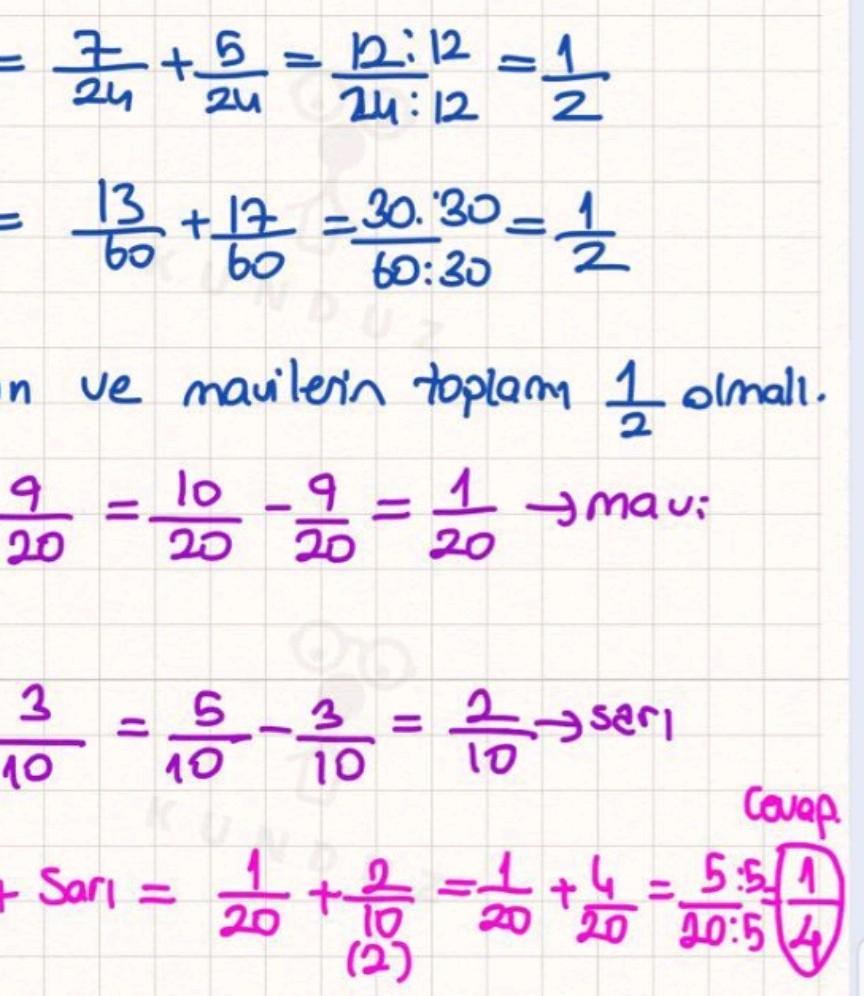 = 7/24 + 5/24 = 12:12/24:12 = 1/2
= 13/60 + 17/60 = 30:30/60:30 = 1/2
n ve mavilerin toplamı 1/2 olmalı.
9/20 = 10/20 - 9/20 = 1/20 → mavi
3/10 = 5/10 - 3/10 = 2/10 → sarı
Cevap.
+ Sarı = 1/20 + 2/10 (2) = 1/20 + 4/20 = 5:5/20:5 = 1/4
KUNDUZ
KUNDUZ